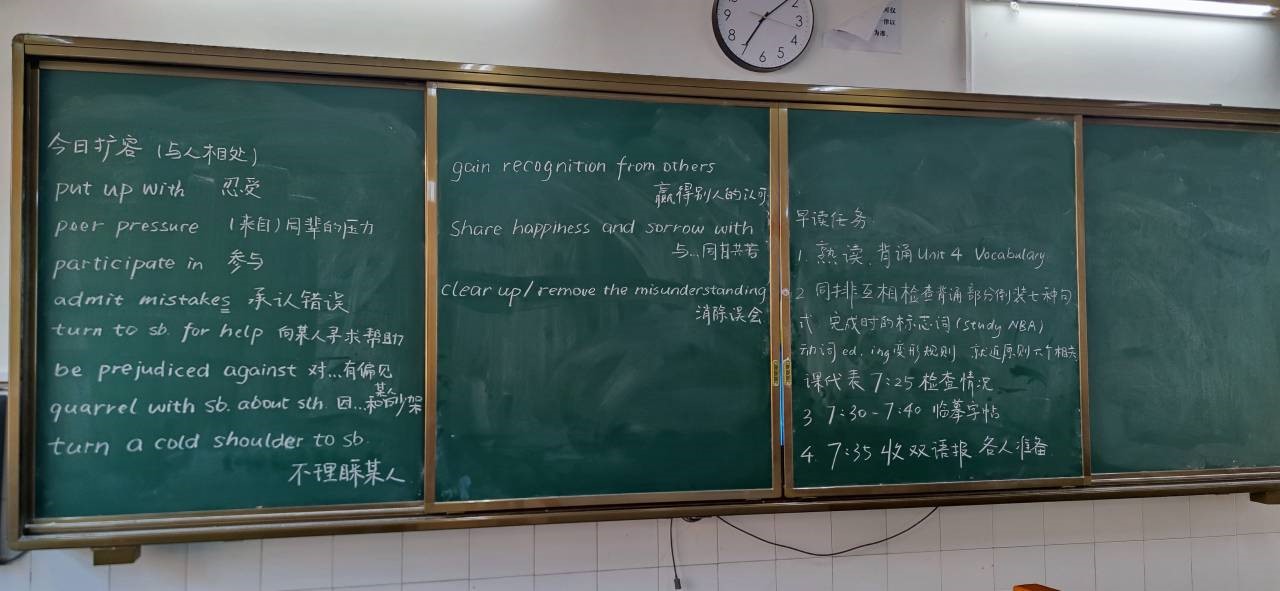 今日扩容（与人相处）
put up with 忍受
peer pressure （来自）同辈的压力
participate in 参与
admit mistakes 承认错误
turn to sb. for help 向某人寻求帮助
be prejudiced against 对...有偏见
quarrel with sb. about sth. 因...和某人吵架
turn a cold shoulder to sb.
不理睬某人
gain recognition from others
赢得别人的认可
Share happiness and sorrow with
与...同甘共苦
clear up/remove the misunderstanding
消除误会
早读任务
1. 熟读、背诵Unit 4 Vocabulary
2 同排互相检查背诵部分倒装七种句
式 完成时的标志词(study NBA)
动词ed, ing变形规则 就近原则六个相关
课代表 7:25 检查情况
3 7:30-7:40 临摹字帖
4. 7:35 收双语报 各人准备
12
2
3
4
5
6
7
8
9
10